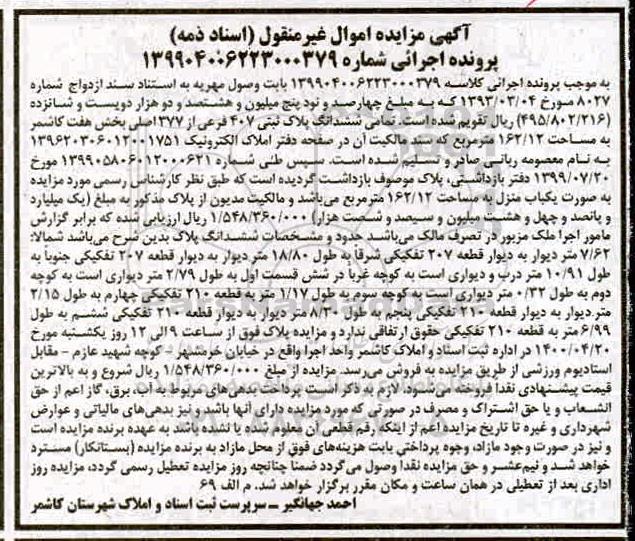 آگهی مزایده اموال غیرمنقول (اسناد ذمه)
پرونده اجرائی شماره ۱۳۹۹۰۴۰۰۶۲۲۳۰۰۰۳۷۹
به موجب پرونده اجرائی کلاسه ۱۳۹۹۰۴۰۰۶۲۲۳۰۰۰۳۷۹ بابت وصول مهریه به استناد سند ازدواج شماره
۸۰۲۷ مورخ ۱۳۹۳/۰۳/۰۴ که به مبلغ چهارصد و نود پنج میلیون و هشتصد و دو هزار دویست و شانزده
(۴۹۵/۸۰۲/۲۱۶) ریال تقویم شده است. تمامی ششدانگ پلاک ثبتی ۴۰۷ فرعی از ۳۷۷ اصلی بخش هفت کاشمر
به مساحت ۱۶۲/۱۲ مترمربع که سند مالکیت آن در صفحه دفتر املاک الکترونیک ۱۳۹۶۲۰۳۰۶۰۱۲۰۰۱۷۵۱
به نام معصومه ربانی صادر و تسلیم شده است. سپس طی شماره ۱۳۹۹۰۵۸۰۶۰۱۲۰۰۰۶۲۱ مورخ
۱۳۹۹/۰۷/۲۰ دفتر بازداشتی، پلاک موصوف بازداشت گردیده است که طبق نظر کارشناس رسمی مورد مزایده
به صورت یکباب منزل به مساحت ۱۶۲/۱۲ مترمربع می‌باشد و مالکیت مدیون از پلاک مذکور به مبلغ (یک میلیارد
و پانصد و چهل و هشت میلیون و سیصد و شصت هزار) ۱/۵۴۸/۳۶۰/۰۰۰ ریال ارزیابی شده که برابر گزارش
مامور اجرا ملک مزبور در تصرف مالک می‌باشد حدود و مشخصات ششدانگ پلاک بدین شرح می‌باشد شمالا:
۷/۶۲ متر دیوار به دیوار قطعه ۲۰۷ تفکیکی شرقاً به طول ۱۸/۸۰ متر دیوار به دیوار قطعه ۲۰۷ تفکیکی جنوباً به
طول ۱۰/۹۱ متر درب و دیواری است به کوچه غرباً در شش قسمت اول به طول ۲/۷۹ متر دیواری است به کوچه
دوم به طول ۰/۳۲ متر دیواری است به کوچه سوم به طول ۱/۱۷ متر به قطعه ۲۱۰ تفکیکی چهارم به طول ۲/۱۵
متر دیوار به دیوار قطعه ۲۱۰ تفکیکی پنجم به طول ۸/۳۰ متر دیوار به دیوار قطعه ۲۱۰ تفکیکی ششم به طول
۶/۹۹ متر به قطعه ۲۱۰ تفکیکی حقوق ارتفاقی ندارد و مزایده پلاک فوق از ساعت ۹ الی ۱۲ روز یکشنبه مورخ
۱۴۰۰/۰۴/۲۰ در اداره ثبت اسناد و املاک کاشمر واحد اجرا واقع در خیابان خرمشهر - کوچه شهید عازم - مقابل
استادیوم ورزشی از طریق مزایده به فروش می‌رسد. مزایده از مبلغ ۱/۵۴۸/۳۶۰/۰۰۰ ریال شروع و به بالاترین
قیمت پیشنهادی نقدا فروخته می‌شود. لازم به ذکر است پرداخت بدهی‌های مربوط به آب، برق، گاز اعم از حق
انشعاب و یا حق اشتراک و مصرف در صورتی که مورد مزایده دارای آنها باشد و نیز بدهی‌های مالیاتی و عوارض
شهرداری و غیره تا تاریخ مزایده اعم از اینکه رقم قطعی آن معلوم شده یا نشده باشد به عهده برنده مزایده است
و نیز در صورت وجود مازاد، وجوه پرداختی بابت هزینه‌های فوق از محل مازاد به برنده مزایده (بستانکار) مسترد
خواهد شد و نیم‌عشر و حق مزایده نقدا وصول می‌گردد ضمنا چنانچه روز مزایده تعطیل رسمی گردد، مزایده روز
اداری بعد از تعطیلی در همان ساعت و مکان مقرر برگزار خواهد شد. م الف ۶۹
احمد جهانگیر - سرپرست ثبت اسناد و املاک شهرستان کاشمر